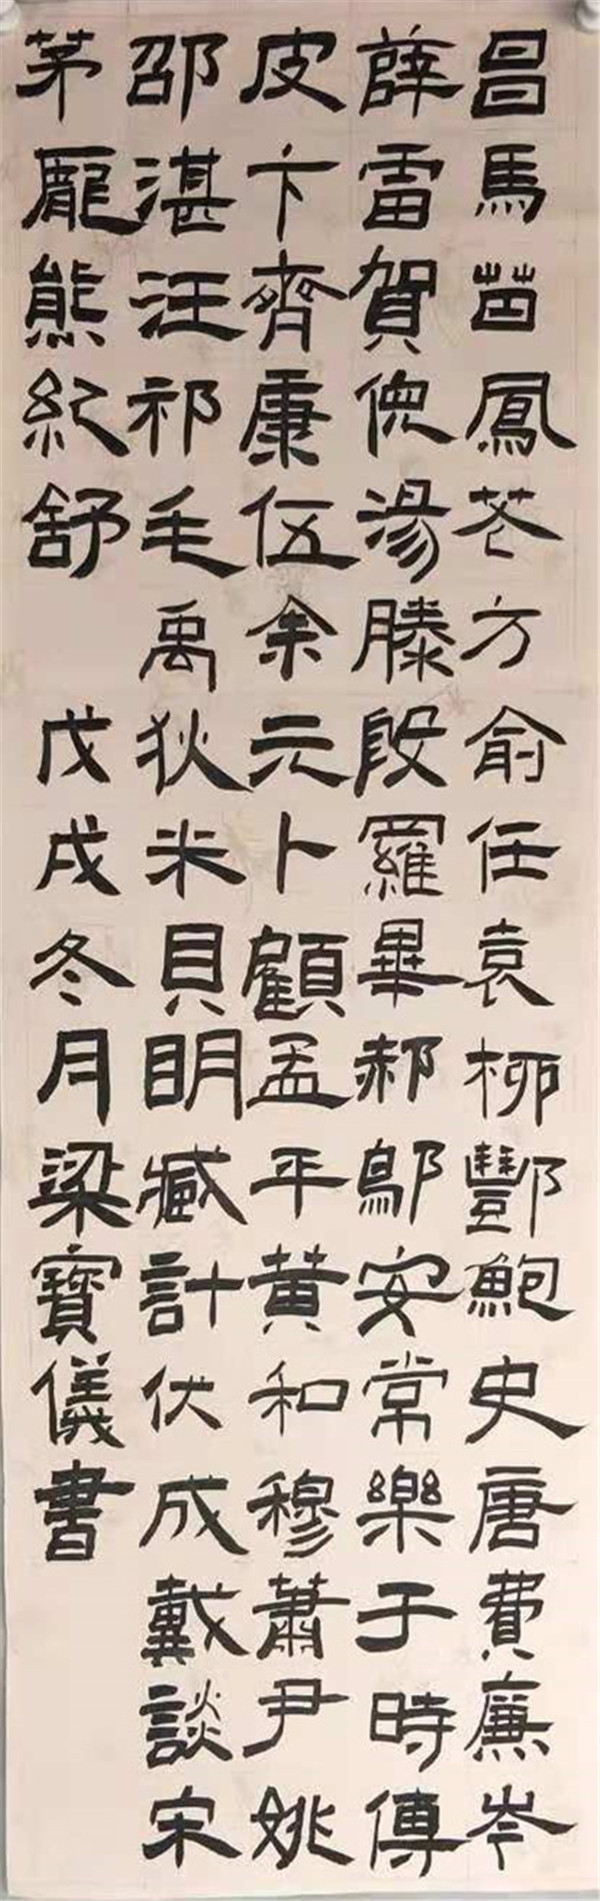 昌馬苗鳳花方俞任袁柳酆鮑史唐費廉岑
薛雷賀倪湯滕殷羅畢郝鄔安常樂于時傅
皮卞齊康伍余元卜顧孟平黃和穆蕭尹姚
邵湛汪祁毛禹狄米貝明臧計伏成戴談宋
茅龐熊紀舒 戊戌冬月梁寶儀書